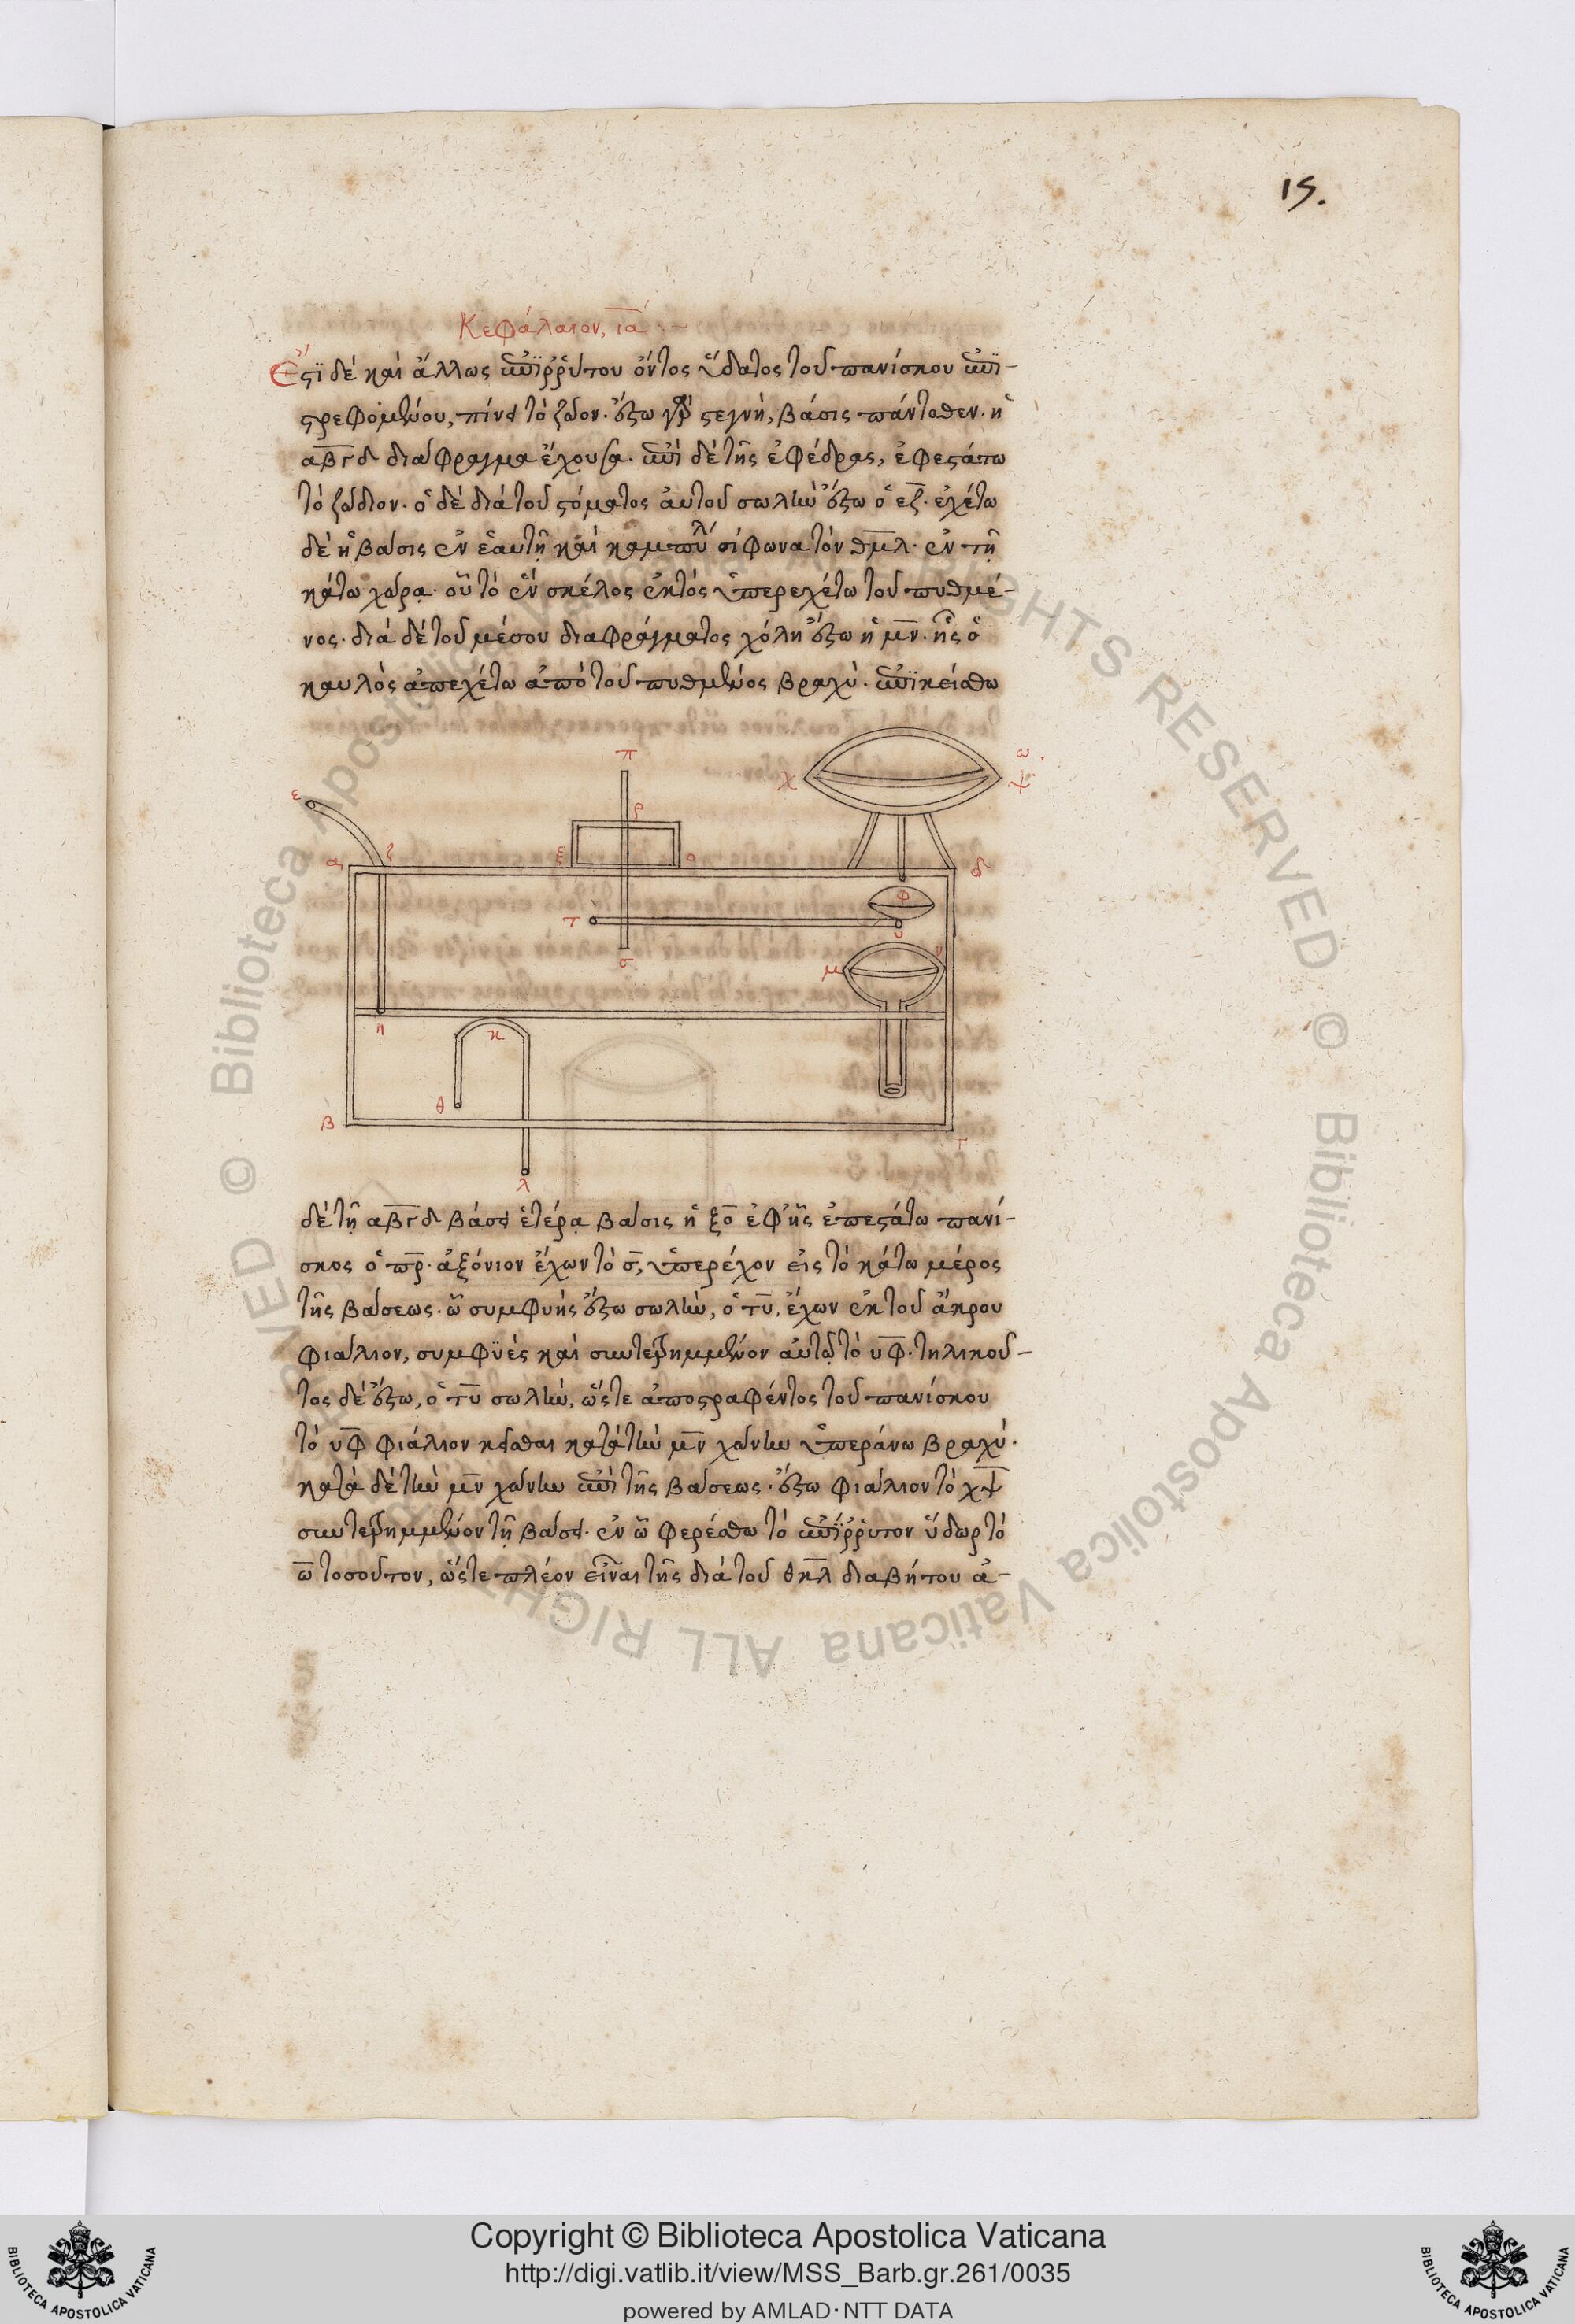 15.
Κεφάλαιον, ια
Ἔστι δὲ καὶ ἄλλως ἐπϊρρύτου ὄντος ὕδατος τοῦ πανίσκου ἐπϊ-
στρεφομένου, πίνει τὸ ζῶον. ἔστω γὰρ στεγνὴ, βάσις πάντοθεν. ἡ
αβγδ διάφραγμα ἔχουσα. ἐπὶ δὲ τῆς ἐφέδρας, ἐφεστάτω
τὸ ζώδιον. ὁ δὲ διὰ τοῦ στόματος ἀυτοῦ σωλὴν ἔστω ὁ εζ. ἐχέτω
δὲ ἡ βάσις ἐν ἑαυτῇ καὶ καμπύλ σίφωνα τὸν θμλ. ἐν τῇ
κάτω χώρᾳ. οὗ τὸ ἓν σκέλος ἐκτὸς ὑπερεχέτω τοῦ πυθμέ-
νος. διὰ δὲ τοῦ μέσου διαφράγματος χόλη ἔστω ἡ μν. ἧς ὁ
καυλὸς ἀπεχέτω ἀπὸ τοῦ πυθμένος βραχὺ. ἐπϊκείσθω
π
ω
χ
ψ
ε
ρ
α
ζ
ξ
ο
δ
φ
τ
υ
σ
μ
ν
η
κ
θ
β
γ
λ
δὲ τῇ αβγδ βάσει ἑτέρᾳ βάσις ἡ ξο ἐφ' ἧς ἐπεστάτω πανί-
σκος ὁ πρ. ἀξόνιον ἔχων τὸ σ, ὑπερέχον εἰς τὸ κάτω μέρος
τῆς βάσεως. ᾧ συμφυὴς ἔστω σωλὴν, ὁ τυ, ἔχων ἐκ τοῦ ἄκρου
φιάλιον, συμφϋὲς καὶ συντετρημμένον ἀυτῷ τὸ υφ. τηλικοῦ-
τος δὲ ἔστω, ὁ τυ σωλὴν, ὥστε ἀποστραφέντος τοῦ πανίσκου
τὸ υφ φιάλιον κεῖσθαι κατὰ τὴν μν χώνην ὑπεράνω βραχύ.
κατὰ δὲ τὴν μν χώνην ἐπὶ τῆς βάσεως. ἔστω φιάλιον τὸ χψ
συντετρημμένον τῇ βάσει. ἐν ᾧ φερέσθω τὸ ἐπϊρρυτον ὕδωρ τὸ
ω τοσοῦτον, ὥστε πλέον εἶναι τῆς διὰ τοῦ θκλ διαβήτου ἀ-
Copyright © Biblioteca Apostolica Vaticana
http://digi.vatlib.it/view/MSS_Barb.gr.261/0035
powered by AMLAD·NTT DATA
BIBLIOTECA APOSTOLICA VATICANA
BIBLIOTECA APOSTOLICA VATICANA
© Biblioteca Apostolica Vaticana ALL RIGHTS RESERVED © Biblioteca Apostolica Vaticana ALL RIGHTS RESERVED